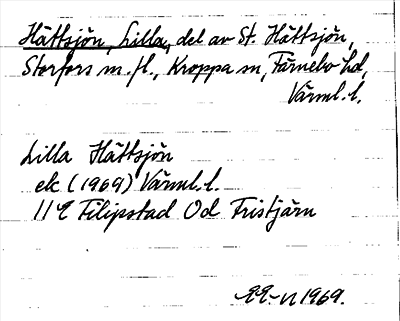 Hättsjön, Lilla, del av St. Hättsjön,
Storfors m. fl., Kroppa sn, Färnebo hd,
Värml. l.
Lilla Hättsjön
ek (1969) Värml. l.
11 E Filipstad 0d Fristjärn
1969.